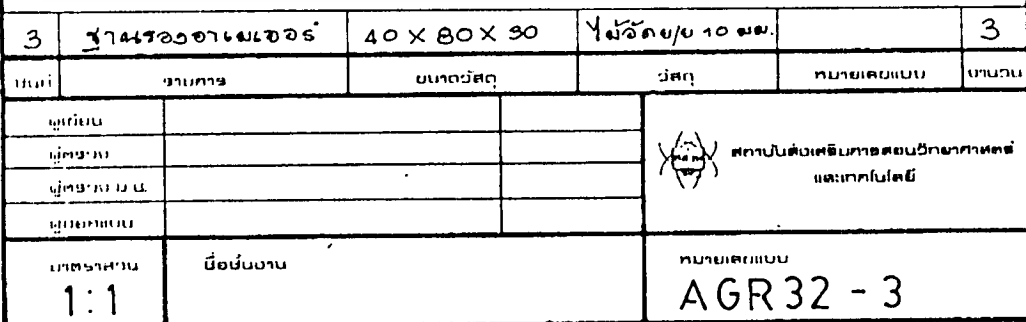 3 ฐานรองอาเมเจอร์ 40 × 80 × 90 ไม้อัด ย/ย 10 มม. 3
ชิ้นที่ รายการ ขนาดวัสดุ วัสดุ หมายเลขแบบ จำนวน
ผู้เขียน
ผู้ตรวจ
ผู้ตรวจ ม.น.
ผู้ออกแบบ
สถาบันส่งเสริมการสอนวิทยาศาสตร์
และเทคโนโลยี
มาตราส่วน ชื่อชิ้นงาน หมายเลขแบบ
1:1 AGR32 - 3